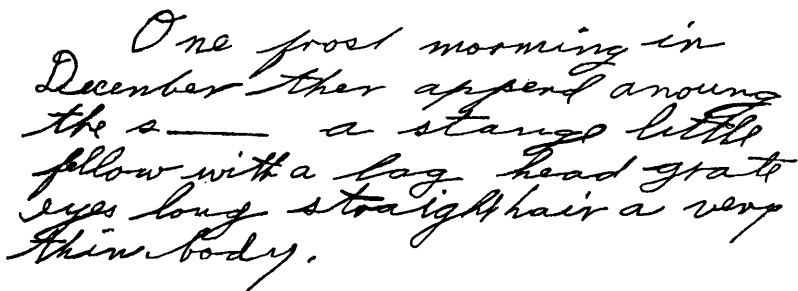 One frost morning in
December ther apperd anoung
the s—— a stange little
fellow with a lag head grate
eyes long straight hair a very
thin body.